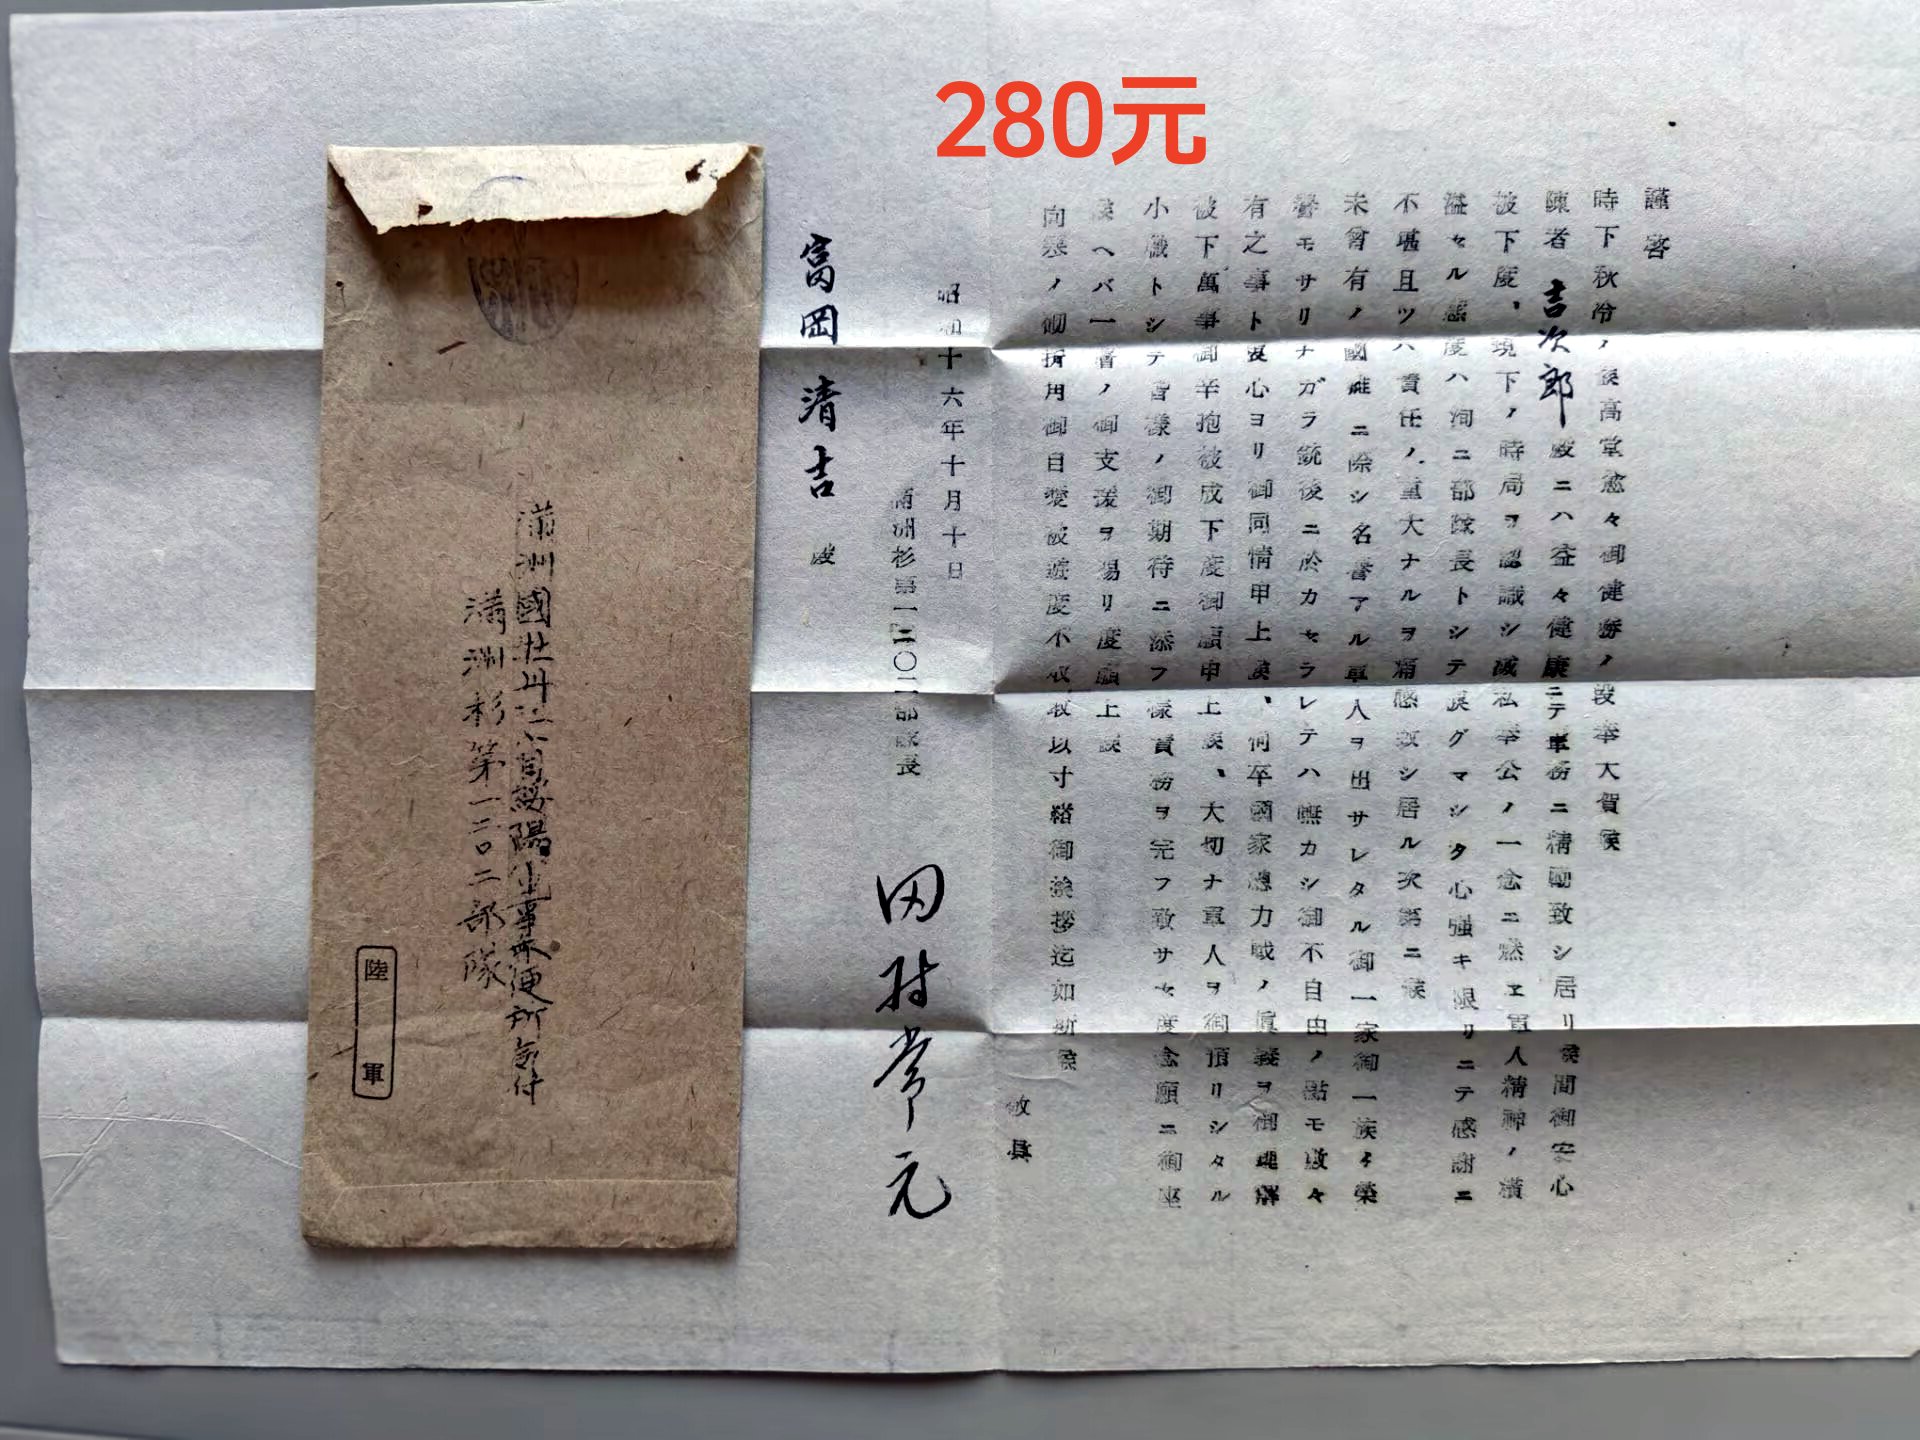 280元
謹啓
時下秋冷ノ候高堂愈々御健勝ノ段奉大賀候
陳者吉次郎殿ニハ益々健康ニテ軍務ニ精勵致シ居リ候間御安心
被下度、現下ノ時局ヲ認識シ滅私奉公ノ一念ニ燃エ軍人精神ノ横
溢セル態度ハ洵ニ部隊長トシテ涙グマシク心强キ限リニテ感謝ニ
不堪且ツハ責任ノ重大ナルヲ痛感致シ居ル次第ニ候
未曾有ノ國難ニ際シ名譽アル軍人ヲ出サレタル御一家御一族ノ榮
譽モサリナガラ銃後ニ於カセラレテハ嘸カシ御不自由ノ點モ數々
有之事ト衷心ヨリ御同情申上候、何卒國家總力戰ノ眞義ヲ御理解
被下萬事御辛抱被成下度御願申上候、大切ナ軍人ヲ御預リシタル
小職トシテ皆樣ノ御期待ニ添フ樣責務ヲ完フ致サセ度念願ニ御座
候ヘバ一層ノ御支援ヲ賜リ度願上候
向寒ノ砌折角御自愛被遊度不取敢以寸楮御挨拶迄如斯候
敬具
昭和十六年十月十日
滿洲杉第一二〇二部隊長
田村常元
富岡清吉殿
滿洲國牡丹江省綏陽軍事郵便所氣付
滿洲杉第一二〇二部隊
陸軍